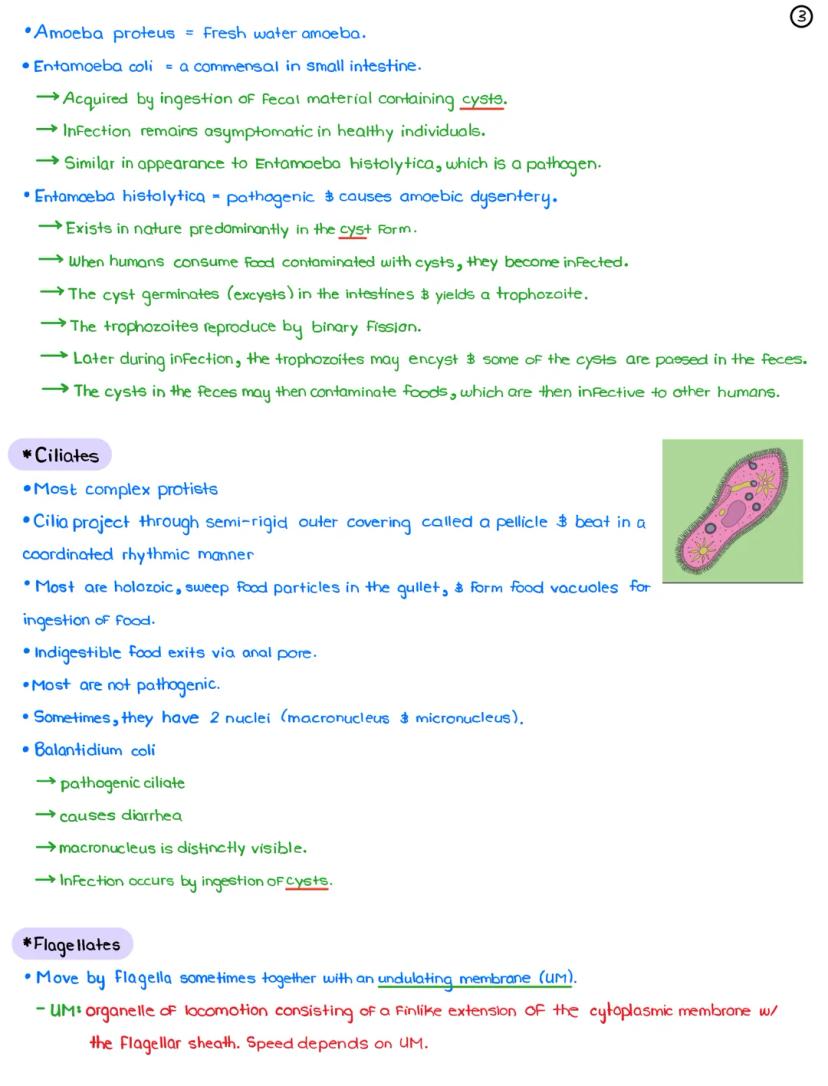 3
• Amoeba proteus = fresh water amoeba.
• Entamoeba coli = a commensal in small intestine.
→ Acquired by ingestion of fecal material containing cysts.
→ Infection remains asymptomatic in healthy individuals.
→ Similar in appearance to Entamoeba histolytica, which is a pathogen.
• Entamoeba histolytica = pathogenic & causes amoebic dysentery.
→ Exists in nature predominantly in the cyst form.
→ When humans consume food contaminated with cysts, they become infected.
→ The cyst germinates (excysts) in the intestines & yields a trophozoite.
→ The trophozoites reproduce by binary fission.
→ Later during infection, the trophozoites may encyst & some of the cysts are passed in the feces.
→ The cysts in the feces may then contaminate foods, which are then infective to other humans.
*Ciliates
• Most complex protists
• Cilia project through semi-rigid outer covering called a pellicle & beat in a
coordinated rhythmic manner
• Most are holozoic, sweep food particles in the gullet, & form food vacuoles for
ingestion of food.
• Indigestible food exits via anal pore.
• Most are not pathogenic.
• Sometimes, they have 2 nuclei (macronucleus & micronucleus).
• Balantidium coli
→ pathogenic ciliate
→ causes diarrhea
→ macronucleus is distinctly visible.
→ Infection occurs by ingestion of cysts.
*Flagellates
• Move by flagella sometimes together with an undulating membrane (UM).
- UM: organelle of locomotion consisting of a finlike extension of the cytoplasmic membrane w/
the flagellar sheath. Speed depends on UM.